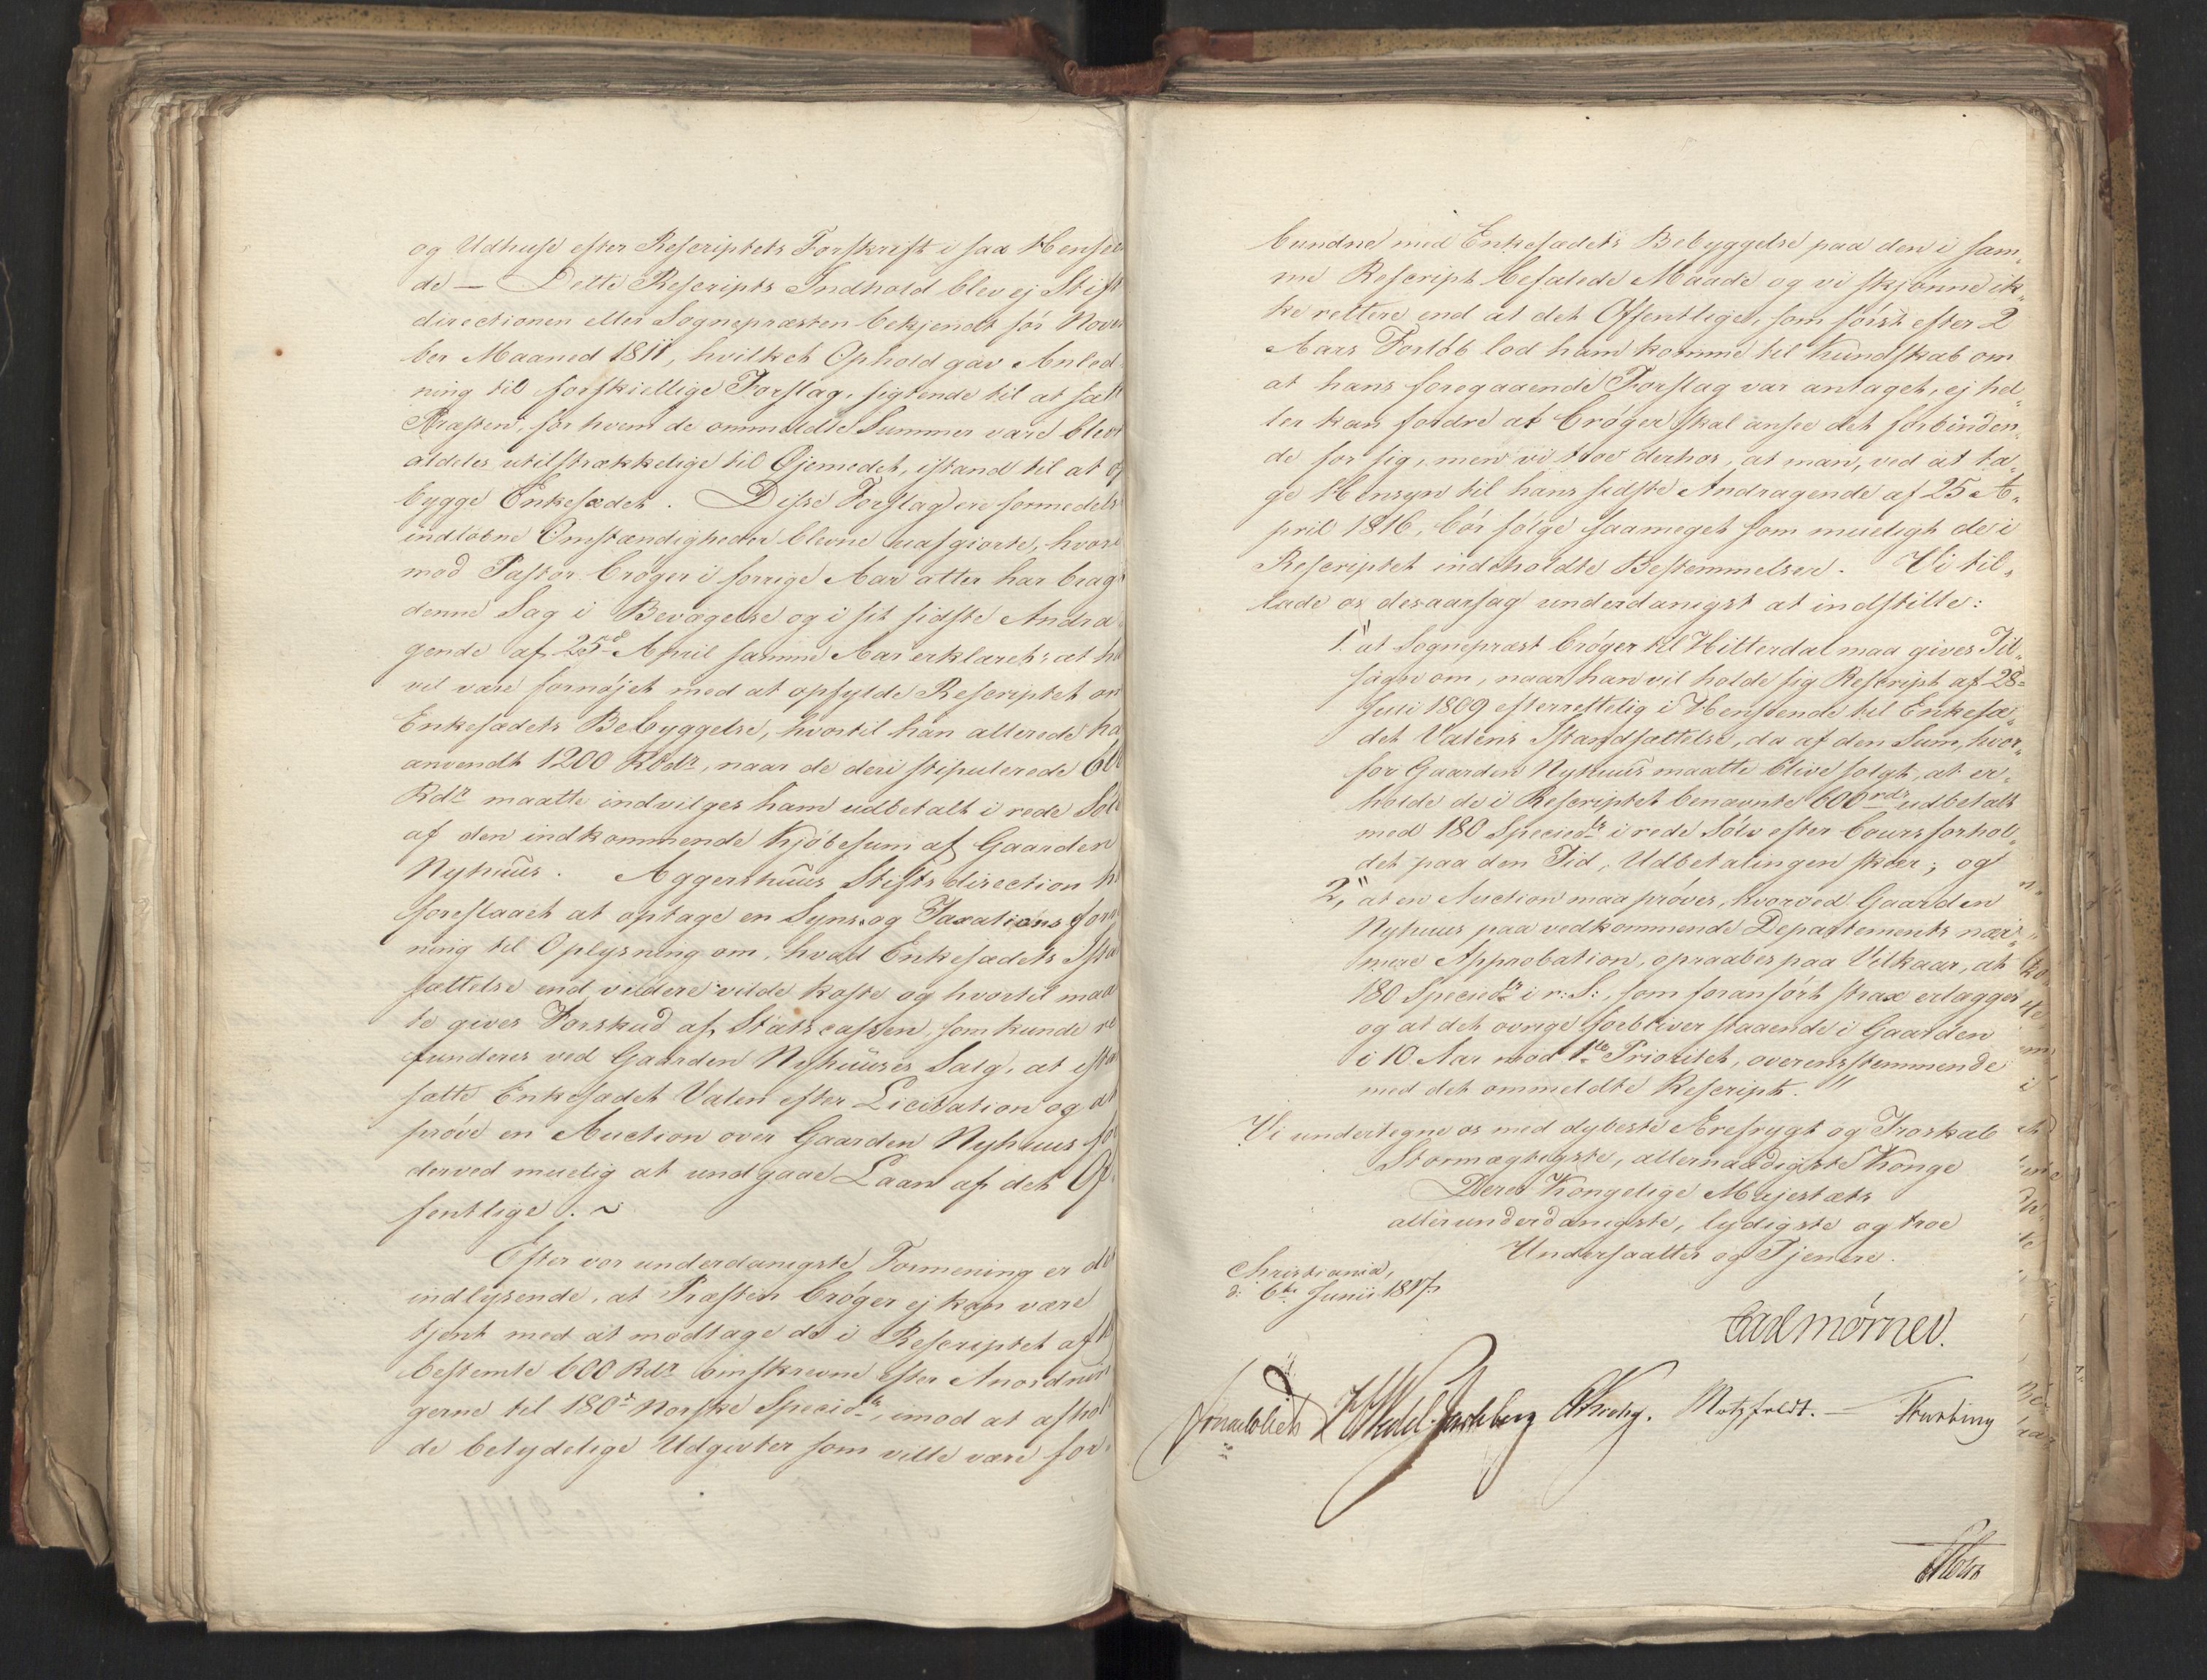 og Udhuse efter Rescriptets Forskrift i saa Hense¬
de — Dette Rescripts Indhold blev ej Stift
directionen eller Sognepræsten bekjendt før Novem
ber Maaned 1811, hvilket Ophold gav Anled
ning til forskiellige Forslag, sigtende til at sætt
Præsten, for hvem de ommeldte Summer vare blevn
aldeles utilstrækkelige til Øjemedet, istand til at op
bygge Enkesædet. Disse Forslag ere formedelst
indløbne Omstændigheder blevne uafgiorte, hvori
mod Pastor Crøger i forrige Aar atter har bragt
denne Sag i Bevægelse og i sit sidste Andra
gende af 25d April samme Aar erklæret: at ha
vil være fornøjet med at opfylde Rescriptet om
Enkesædets Bebyggelse, hvortil han allerede ha
anvendt 1200 Rbdr, naar de deri stipulerede 600
Rdr maatte indvilges ham udbetalt i rede Sølv
af den indkommende Kjøbesum af Gaarden
Nyhuus. Aggershuus Stiftsdirection ha
foreslaaet at optage en Syns og Taxations forre
ning til Oplysning om, hvad Enkesædets Ista
sættelse end videre vilde koste og hvortil maat
te gives Forskud af Statscassen, som kunde re
funderes ved Gaarden Nyhuuses Salg, at ista
sætte Enkesædet Valen efter Licitation og at
prøve en Auction over Gaarden Nyhuus for
derved muelig at undgaae Laan af det Of
fentlige. ~
Efter vor underdanigste Formening er det
indlysende, at Præsten Crøger ej kan være
tjent med at modtage de i Rescriptet af
bestemte 600 Rdr omskrevne efter Anordnin
gerne til 180 Norske Speciedr, imod at afhol
de betydelige Udgivter som ville være for¬
bundne med Enkesædets Bebyggelse paa den i sam¬
me Rescript befalede Maade og vi skjønne ik¬
ke rettere end at det Offentlige, som først efter 2
Aars Forløb lod ham komme til Kundskab om
at hans foregaaende Forslag var antaget, ej hel¬
ler kan fordre at Crøger skal ansee det forbinden¬
de for sig, men vi troe derhos, at man, ved at ta¬
ge Hensyn til hans sidste Andragende af 25 A¬
pril 1816, bør følge saameget som mueligt de i
Rescriptet indeholdte Bestemmelser. Vi til¬
lade os desaarsag underdanigst at indstille:
1" at Sognepræst Crøger til Hitterdal maa gives Til¬
sagn om, naar han vil holde sig Rescript af 28
Juli 1809 efterrettelig i Henseende til Enkesæ¬
det Valens Istandsættelse, da af den Sum, hvor¬
for Gaarden Nyhuus maatte blive solgt, at er¬
holde de i Rescriptet benævnte 600 rdr udbetalt
med 180 Speciedr i rede Sølv efter Coursforhol¬
det paa den Tid, Udbetalingen skeer; og
2," at en Auction maa prøves, hvorved Gaarden
Nyhuus paa vedkommende Departements nær¬
mere Approbation, opraabes paa Vilkaar, at
180 Speciedr i r: S:, som foranført strax erlægges
og at det øvrige forbliver staaende i Gaarden
i 10 Aar mod 1ste Prioritet, overensstemmende
med det ommeldte Rescript."
Vi undertegne os med dybeste Ærefrygt og Troskab
Stormægtigste, allernaadigste Konge
Deres Kongelige Majestæts
allerunderdanigste, lydigste og troe
Undersaatter og Tjenere.
Christiania,
d: 6te Junii 1817.
Carl Mörner.
Sommerhielm HWedel-Jarlsberg CKrohg. Motzfeldt. — Treschow